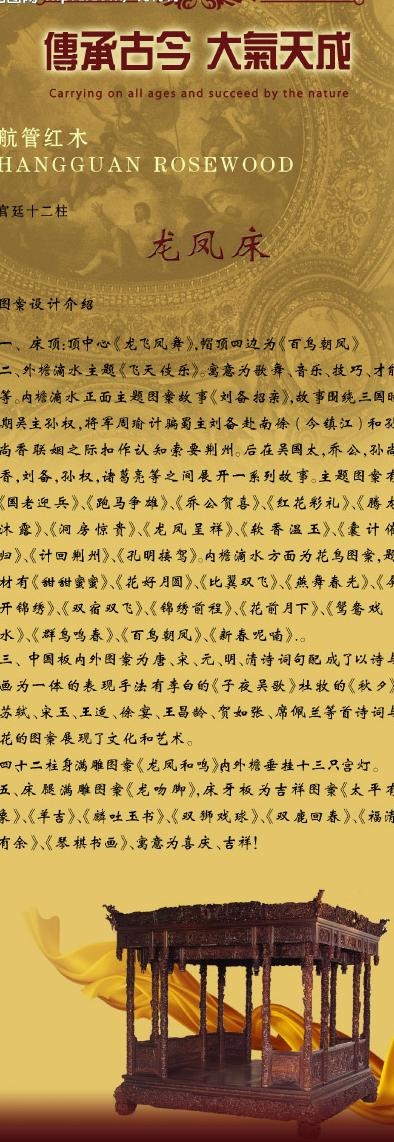 傳承古今 大氣天成
Carrying on all ages and succeed by the nature
航管红木
HANGGUAN ROSEWOOD
官廷十二柱
龙凤床
图案设计介绍
一、床顶:顶中心《龙飞凤舞》,帽顶四边为《百鸟朝凤》
二、外檐滴水主题《飞天伎乐》。寓意为歌舞、音乐、技巧、才能
等。内檐滴水正面主题图案故事《刘备招亲》,故事围绕三国时
期吴主孙权,将军周瑜计骗蜀主刘备赴南徐（今镇江）和孙
尚香联姻之际扣作认知索要荆州。后在吴国太,乔公,孙尚
香,刘备,孙权,诸葛亮等之间展开一系列故事。主题图案有
《国老迎兵》、《跑马争雄》、《乔公贺喜》、《红花彩礼》、《腾龙
沐露》、《洞房惊贵》、《龙凤呈祥》、《软香温玉》、《囊计催
归》、《计回荆州》、《孔明接驾》。内檐滴水方面为花鸟图案,题
材有《甜甜蜜蜜》、《花好月圆》、《比翼双飞》、《燕舞春光》、《
开锦绣》、《双宿双飞》、《锦绣前程》、《花前月下》、《鸳鸯戏
水》、《群鸟鸣春》、《百鸟朝凤》、《新春呢喃》.。
三、中国板内外图案为唐、宋、元、明、清诗词句配成了以诗与
画为一体的表现手法有李白的《子夜吴歌》杜牧的《秋夕》
苏轼、宋玉、王适、徐宴、王昌龄、贺如张、席佩兰等首诗词与
花的图案展现了文化和艺术。
四十二柱身满雕图案《龙凤和鸣》内外檐垂挂十三只宫灯。
五、床腿满雕图案《龙吻脚》,床牙板为吉祥图案《太平有
象》、《羊吉》、《麟吐玉书》、《双狮戏球》、《双鹿回春》、《福清
有余》、《琴棋书画》、寓意为喜庆、吉祥!